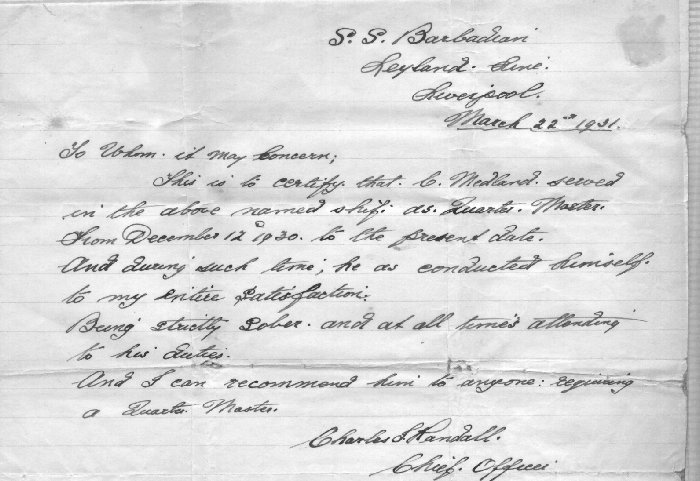 S. S. Barbadian
Leyland. Line.
Liverpool.
March 22nd 1931.
To Whom. it may Concern;
This is to certify. that. C. Medland. served
in the above named ship. as. Quarter. Master.
From December 12th 1930. to the present date.
And during such time; he as conducted himself.
to my entire Satisfaction.
Being strictly Sober. and at all time's attending
to his duties.
And I can recommend him to anyone: requiring
a Quarter. Master.
Charles J Randall.
Chief. Officer